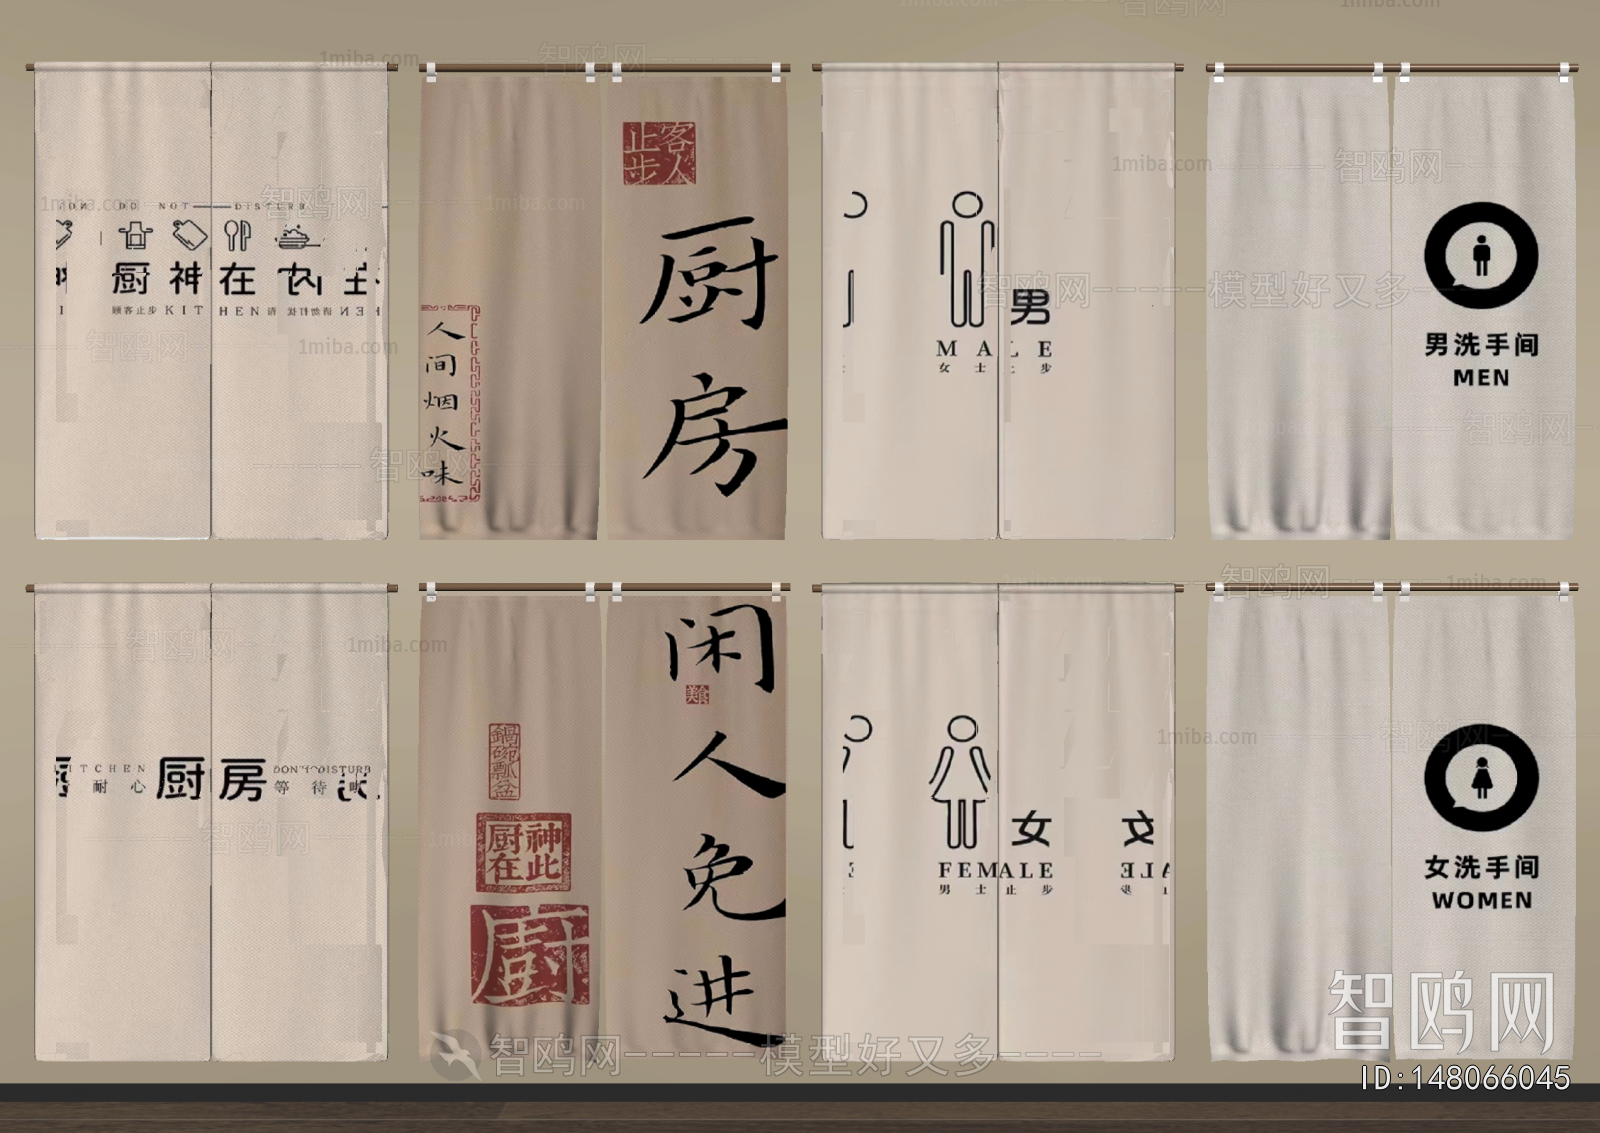 DO NOT DISTURB
厨神在
顾客止步 KIT HEN
客人止步
厨房
人间烟火味
男
MALE
女士止步
男洗手间
MEN
TCHEN
耐心
厨房
DON'T DISTURB
等待
闲人免进
美食
鍋碗瓢盆
神此厨在
廚
女
FEMALE
男士止步
女洗手间
WOMEN
智鸥网
模型好又多
1miba.com
智鸥网
ID:148066045